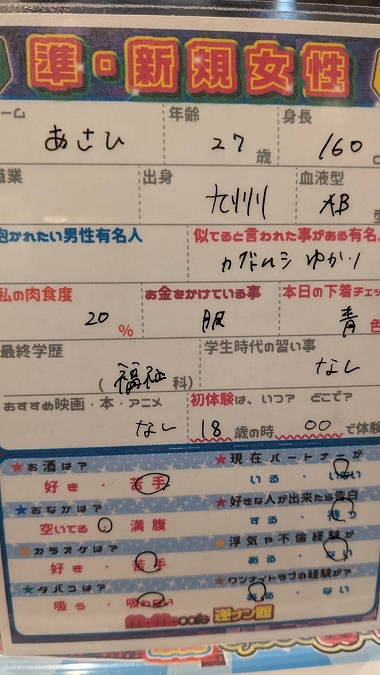 準・新規女性
ーム 年齢 身長
あさひ 27歳 160
職業 出身 血液型
九州 AB型
抱かれたい男性有名人 似てると言われた事がある有名人
私の肉食度 お金をかけている事 本日の下着チェッ
20% 服 青色
最終学歴 学生時代の習い事
(福祉科) なし
おすすめ映画・本・アニメ 初体験は、いつ? どこで?
なし 18歳の時 〇〇で体験
★お酒は? ★現在パートナーが
好き・苦手 いる・いない
★おなかは? ★好きな人が出来たら告白
空いてる・満腹 する・待つ
★カラオケは? ★浮気や不倫経験が
好き・苦手 ある・ない
★タバコは? ★ワンナイトラブの経験が?
吸う・吸わない ある・ない
cafe 逆ナン館